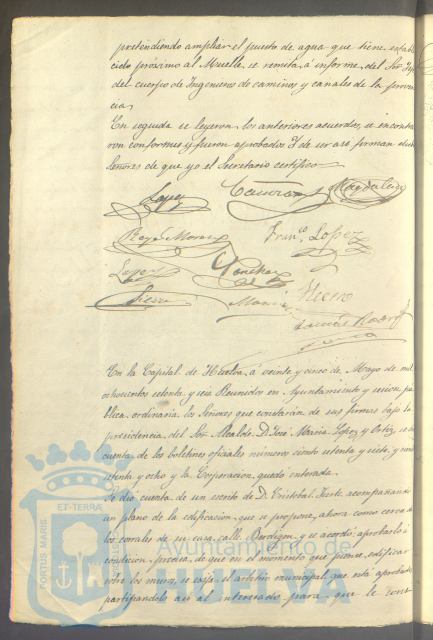 pretendiendo ampliar el puesto de agua que tiene estable
cido próximo al Muelle, se remita á informe del Sor Jefe
del cuerpo de Ingenieros de caminos y canales de la provin
cia.
En seguida se leyeron los anteriores acuerdos, se encontra
ron conformes y fueron aprobados. Y de ser asi firman dichos
Señores de que yo el Secretario certifico
Lopez
Franco. Lopez
Lopez Sanchez
Sierra
En la Capital de Huelva á veinte y cinco de Mayo de mil
ochocientos setenta y seis Reunidos en Ayuntamiento y sesion pu
blica ordinaria los Señores que constarán de sus firmas bajo la
presidencia del Sor Alcalde D. José Maria Lopez y Ortiz, se dió
cuenta de los boletines oficiales números ciento setenta y siete, y ciento
setenta y ocho y la Corporacion quedó enterada.
Se dió cuenta de un escrito de D. Cristobal acompañando
un plano de la edificacion que se propone, ahora como cerca de
los corrales de su casa calle Berdigon y se acordó aprobarlo á
condicion precisa, de que en el momento que piense edificar
sobre los muros, se exija el arbitrio municipal que está aprobado
participándolo asi al interesado para que le cons
PORTUS MARIS ET TERRAE
Ayuntamiento de
HUELVA